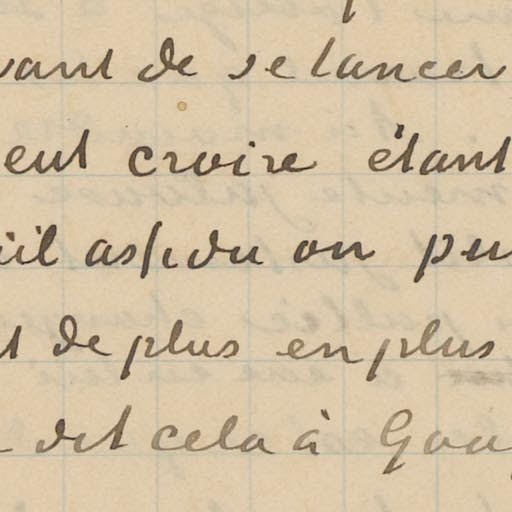 vant de se lancer
eut croire étant
il assidu on peu
t de plus en plus
dit cela à Gau